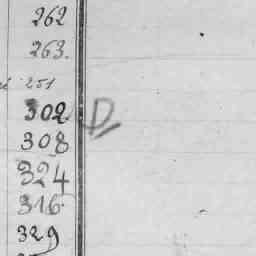 262
263.
251
302. D
308
324
316.
329